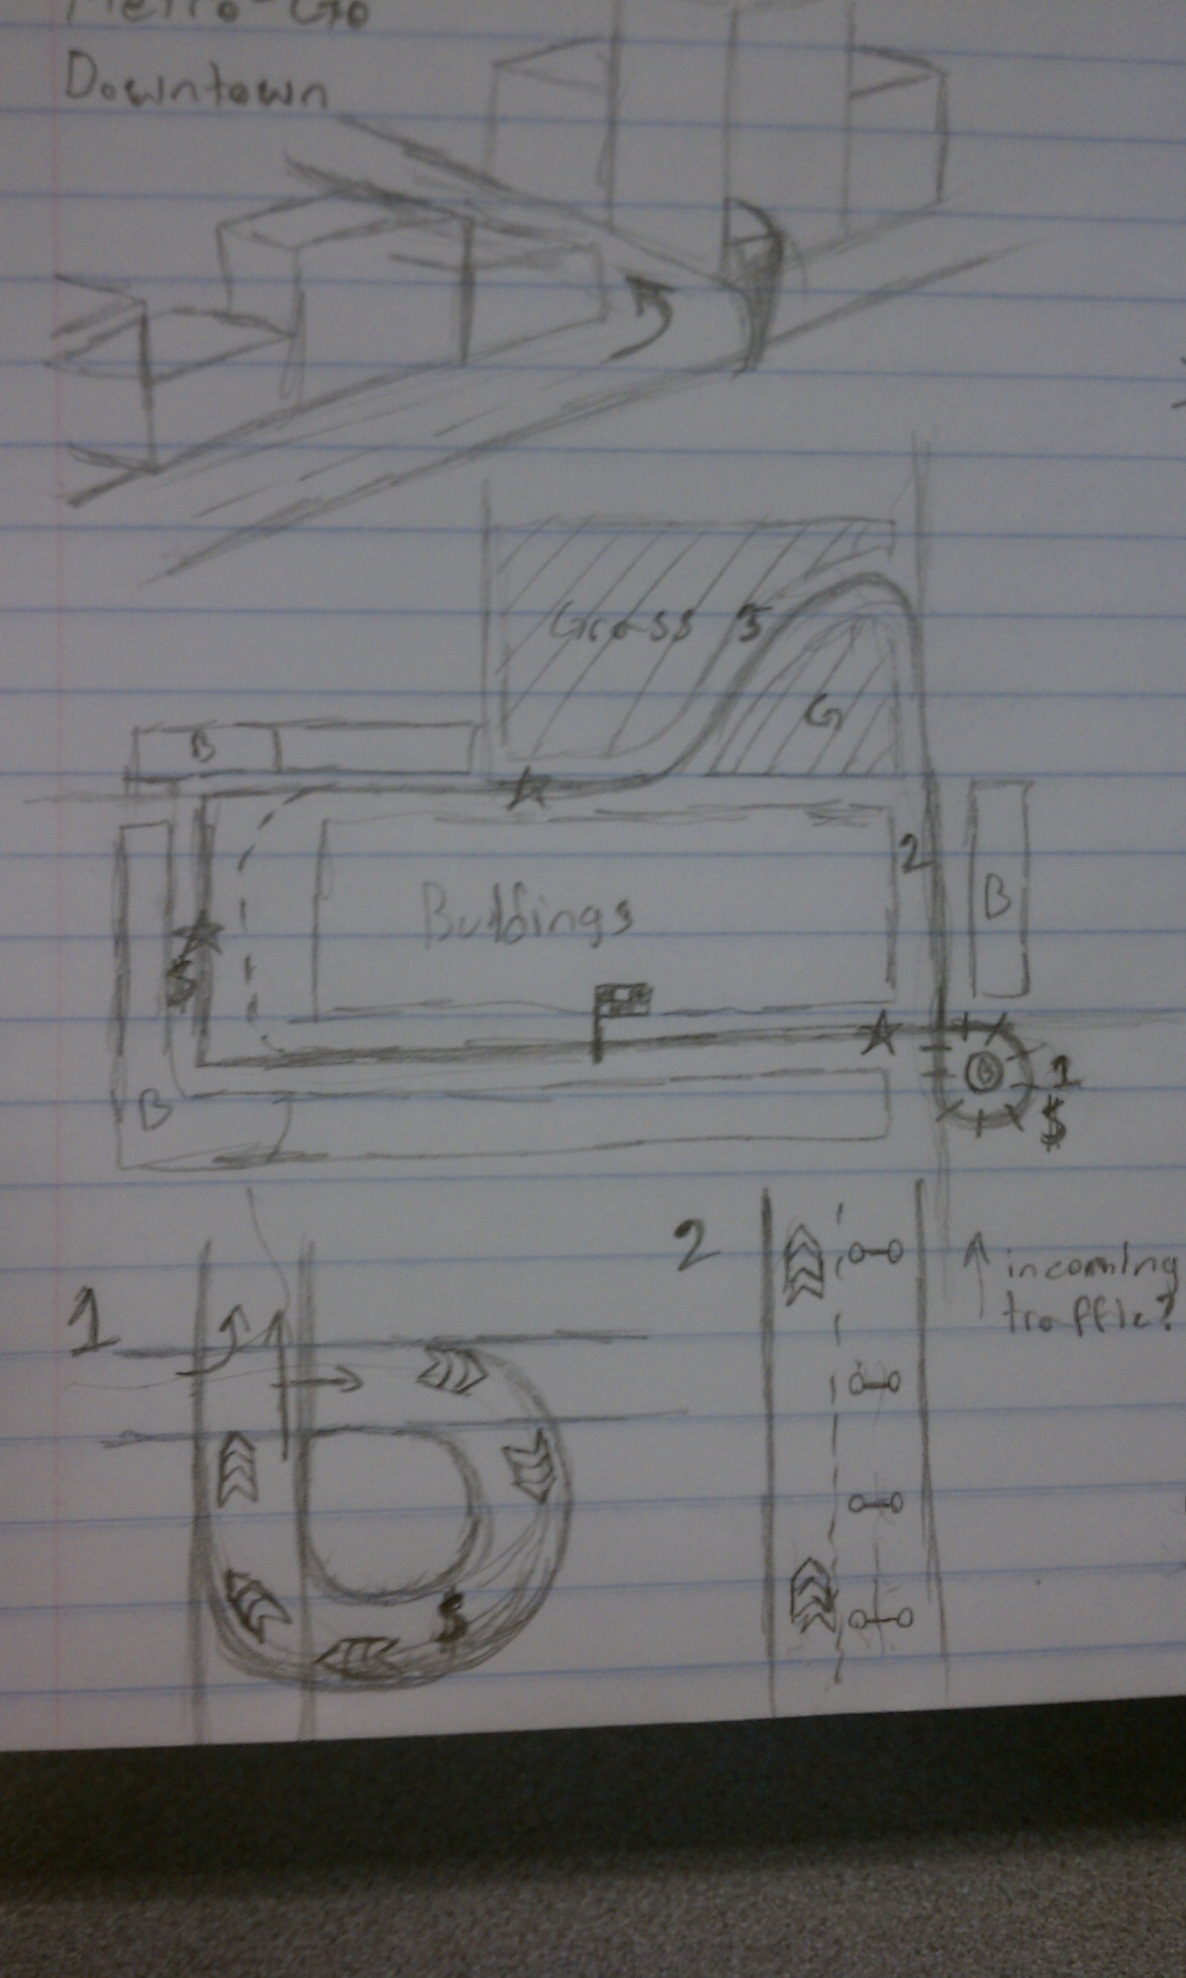 Metro-Go
Downtown
Grass
3
G
B
Buildings
2
B
$
B
B
1
$
1
2
incoming
traffic?
$